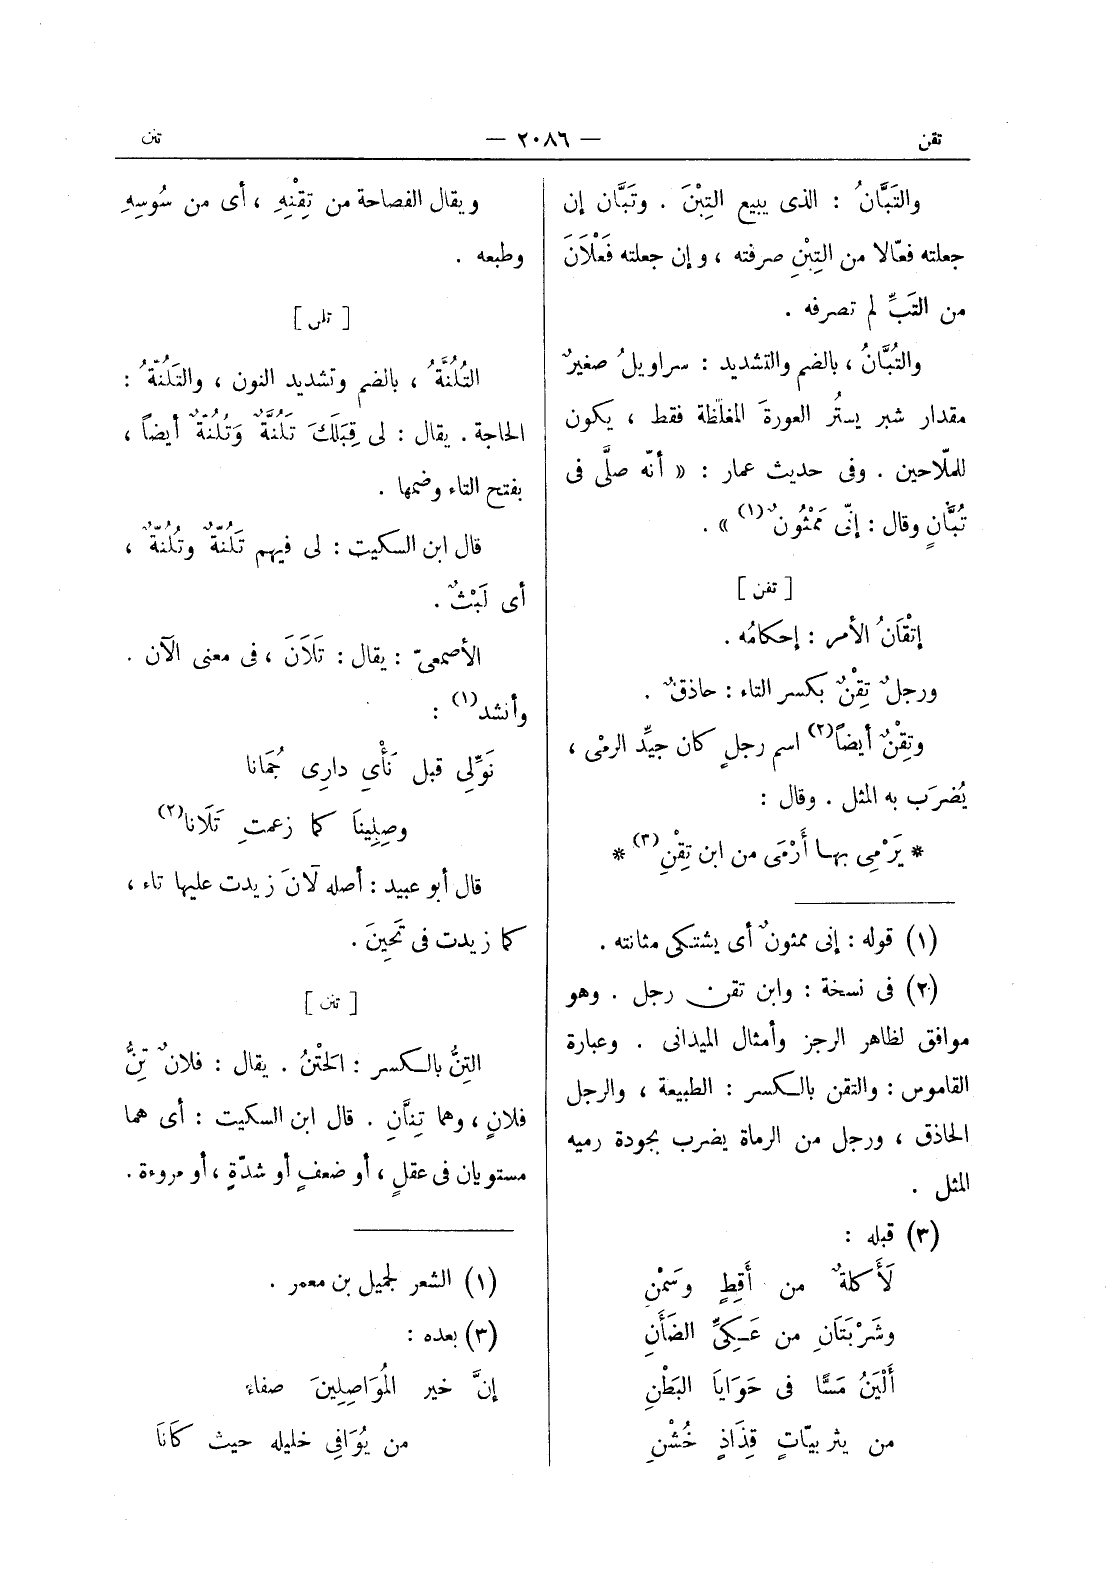 تقن — ٢٠٨٦ — تنن
والتَبَّانُ : الذى يبيع التِبْنَ . وتَبَّان إن
جعلته فعّالا من التِبْنِ صرفته ، وإن جعلته فَعْلَانَ
من التَبِّ لم تصرفه .
والتُبَّانُ ، بالضم والتشديد : سراويلُ صغيرٌ
مقدار شبر يستُر العورةَ المغلّظة فقط ، يكون
للملّاحين . وفى حديث عمار : « أنّه صلَّى فى
تُبَّانٍ وقال : إنّى مَمْثُونٌ (١) » .
[ تقن ]
إتْقَانُ الأمر : إحكامُه .
ورجلٌ تِقْنٌ بكسر التاء : حاذقٌ .
وتِقْنٌ أيضاً (٢) اسم رجلٍ كان جيِّد الرمْى ،
يُضرَب به المثل . وقال :
* يَرْمِى بهـا أَرْمَى من ابن تِقْنِ (٣) *
(١) قوله : إنى ممثونٌ أى يشتكى مثانته .
(٢) فى نسخة : وابن تقن رجل . وهو
موافق لظاهر الرجز وأمثال الميدانى . وعبارة
القاموس : والتقن بالكسر : الطبيعة ، والرجل
الحاذق ، ورجل من الرماة يضرب بجودة رميه
المثل .
(٣) قبله :
لَأَكلةٌ من أَقِطٍ وسَمْنِ
وشَرْبَتَانِ من عَـكِىِّ الضَأنِ
أَلْيَنُ مَسًّا فى حَوَايَا البَطْنِ
من يثربيّاتٍ قِذَاذٍ خُشْنِ
ويقال الفصاحة من تِقْنِهِ ، أى من سُوسِهِ
وطبعه .
[ تلن ]
التُلُنَّةُ ، بالضم وتشديد النون ، والتَلُنّةُ :
الحاجة . يقال : لى قِبَلَكَ تَلُنَّةٌ وَتُلُنّةٌ أيضاً ،
بفتح التاء وضمها .
قال ابن السكيت : لى فيهم تَلُنّةٌ وتُلُنّةٌ ،
أى لَبْثٌ .
الأصمعىّ : يقال : تَلَانَ ، فى معنى الآن .
وأنشد (١) :
نَوِّلِى قبل نَأْىِ دارِى جُمَانا
وصِلِينَا كما زعمتِ تَلَانا (٢)
قال أبو عبيد : أصله لَانَ زيدت عليها تاء ،
كما زيدت فى تَحِينَ .
[ تنن ]
التِنُّ بالـكسر : الحَتْنُ . يقال : فلانٌ تِنُّ
فلانٍ ، وهما تِنَّانِ . قال ابن السكيت : أى هما
مستويان فى عقلٍ ، أو ضعفٍ أو شدّةٍ ، أو مروءة .
(١) الشعر لجميل بن معمر .
(٣) بعده :
إنَّ خير المُوَاصِلِينَ صفاءً
من يُوَافِى خليله حيث كَانَا